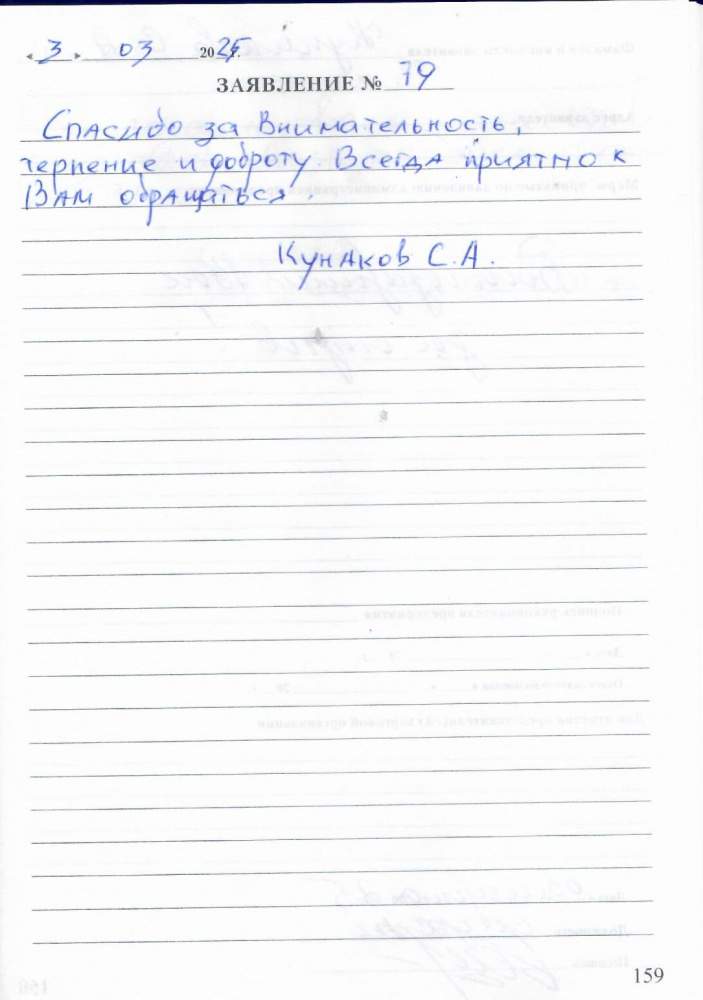 « 3 » 03 2025г.
ЗАЯВЛЕНИЕ № 79
Спасибо за внимательность,
терпение и доброту. Всегда приятно к
Вам обращаться.
Кунаков С.А.
159